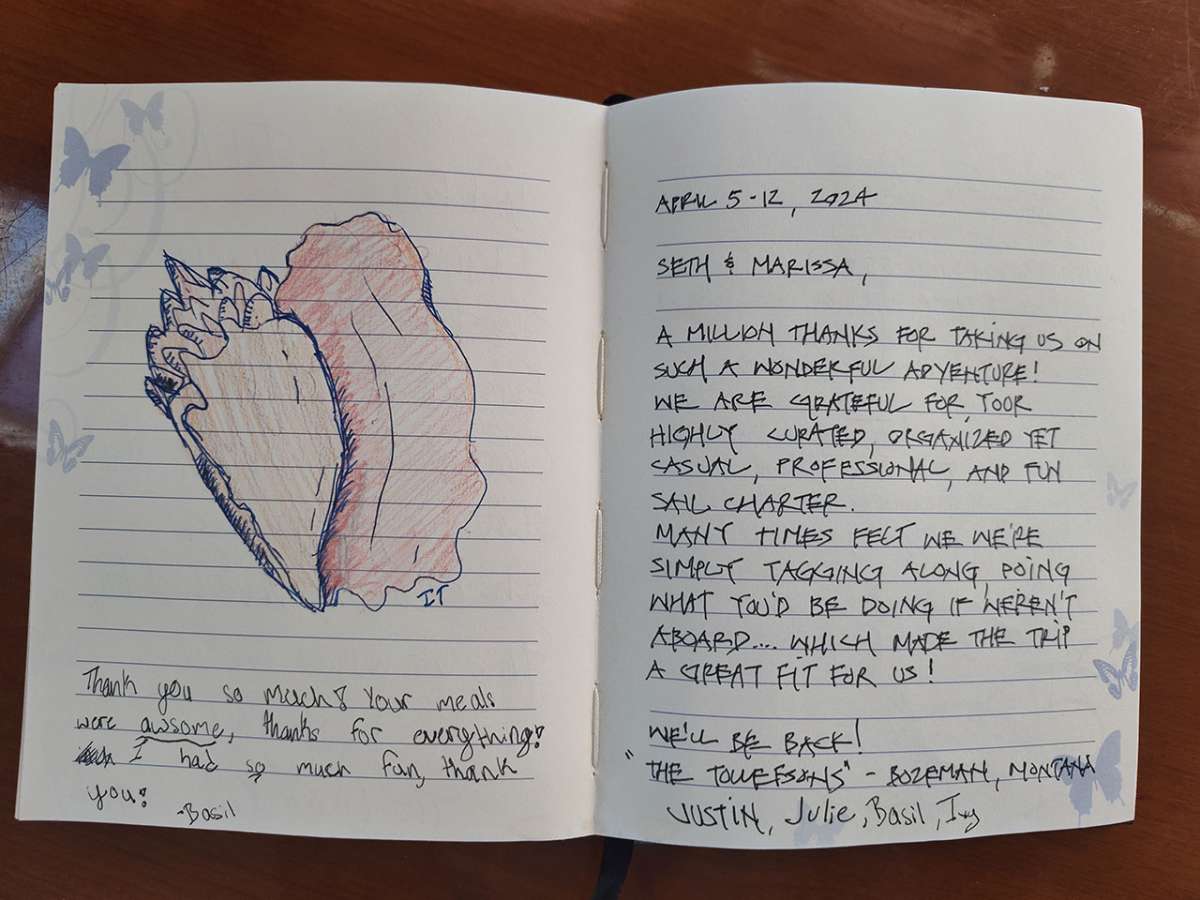 IT
Thank you so much! Your meals
were awsome, thanks for everything!
I had so much fun, thank
you!
-Basil
APRIL 5-12, 2024
SETH & MARISSA,
A MILLION THANKS FOR TAKING US ON
SUCH A WONDERFUL ADVENTURE!
WE ARE GRATEFUL FOR YOUR
HIGHLY CURATED, ORGANIZED YET
CASUAL, PROFESSIONAL, AND FUN
SAIL CHARTER.
MANY TIMES FELT WE WE'RE
SIMPLY TAGGING ALONG, DOING
WHAT YOU'D BE DOING IF WEREN'T
ABOARD.... WHICH MADE THE TRIP
A GREAT FIT FOR US!
WE'LL BE BACK!
"THE TOLLEFSONS" - BOZEMAN, MONTANA
JUSTIN, Julie, Basil, Ivy